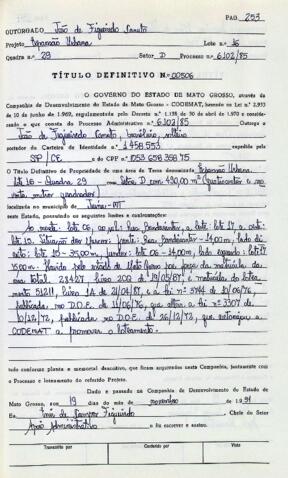 PAG. 253
OUTORGADO João de Figueiredo Canuto
Projeto Expansão Urbana Lote n.º 16
Quadra n.º 29 Setor D Processo n.º 6102/85
TÍTULO DEFINITIVO N.º 00506
O GOVERNO DO ESTADO DE MATO GROSSO, através da
Companhia de Desenvolvimento do Estado de Mato Grosso - CODEMAT, baseado na Lei n.º 2.933
de 10 de junho de 1969, regulamentada pelo Decreto n.º 1.138 de 30 de abril de 1970 e considerando o que consta do Processo Administrativo n.º 6102/85 Outorga a
João de Figueiredo Canuto, brasileiro,
portador da Carteira de Identidade n.º 1458553 expedida pela
SP/CE e do CPF n.º 053658358 75
O Título Definitivo de Propriedade de uma área de Terra denominada Expansão Urbana
lote 16 - Quadra 29 D com 490,00 m² (quatrocentos e noventa metros quadrados)
localizada no município de -MT
neste Estado, possuindo os seguintes limites e confrontações:
ao norte: lote 06, ao sul: Rua a leste: lote 17 a oeste:
lote 15. frente: Rua - 14,00m, lado
lote 15 - 35,00m, fundos: lote 06 - 14,00m, lado lote 17
35,00m. Havido pelo estado de Mato Grosso por força da matrícula
total 28427 livro 200 de e matrícula do loteamento 51211, livro 1A de 21/04/87, e a lei nº 3744 de 10/06/76,
publicada no D.O.E. de 11/06/76, que altera a lei nº 3307 de
10/12/72, publicada no D.O.E. de 26/12/72, que autorizou a
CODEMAT a promover o loteamento.
tudo conforme planta e memorial descritivo, que ficam arquivados nesta Companhia, juntamente com
o Processo e loteamento do referido Projeto.
Dado e passado na Companhia de Desenvolvimento do Estado de
Mato Grosso, aos 19 dias do mês de novembro de 1.991
Eu de Campos Figueiredo Chefe do Setor
Apoio Administrativo o fiz escrever e assino.
Transcrito por
Conferido por
Visto